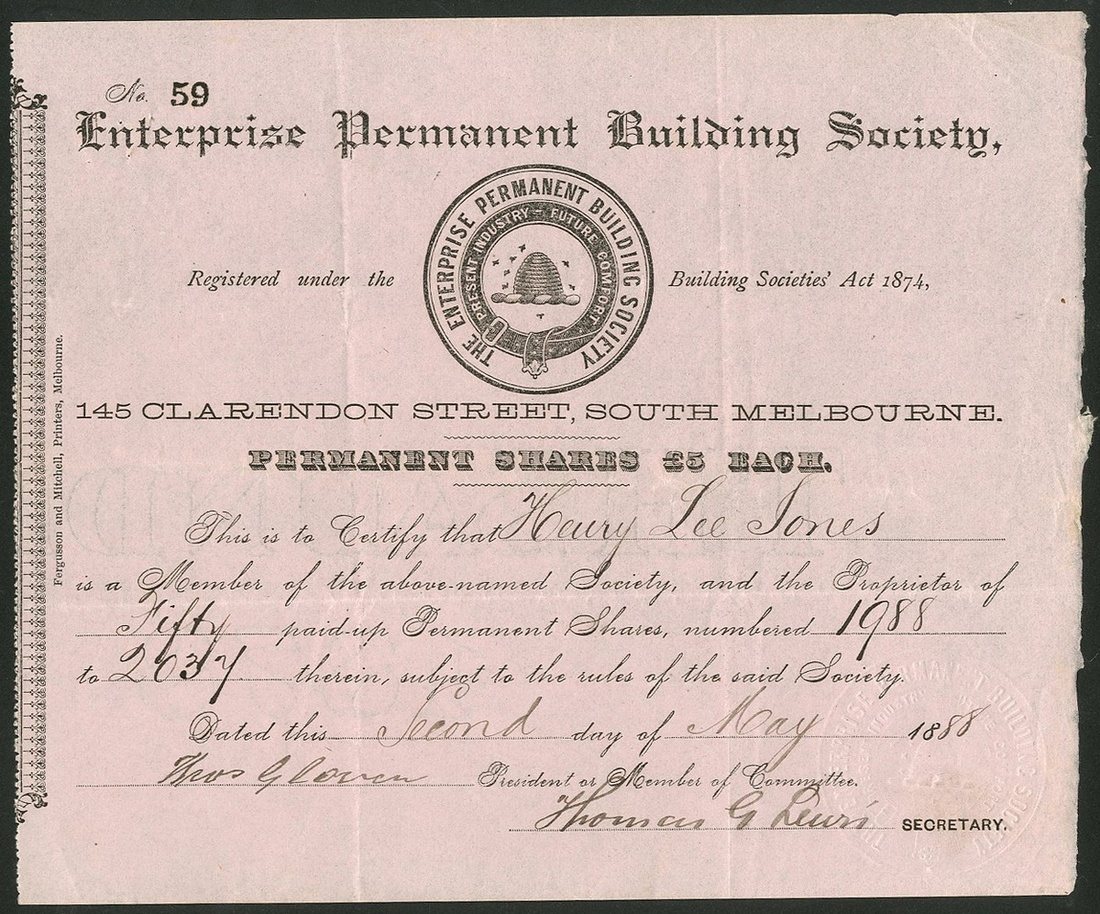 No. 59
Enterprise Permanent Building Society,
THE ENTERPRISE PERMANENT BUILDING SOCIETY
PRESENT INDUSTRY – FUTURE COMFORT
Registered under the Building Societies' Act 1874,
145 CLARENDON STREET, SOUTH MELBOURNE.
PERMANENT SHARES £5 EACH.
This is to Certify that Henry Lee Jones
is a Member of the above-named Society, and the Proprietor of
Fifty paid-up Permanent Shares, numbered 1988
to 2037 therein, subject to the rules of the said Society.
Dated this Second day of May 1888
Thos President or Member of Committee.
Thomas G Lewis SECRETARY.
Fergusson and Mitchell, Printers, Melbourne.